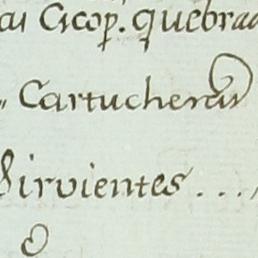 quebrad
Cartucheras
Sirvientes ....